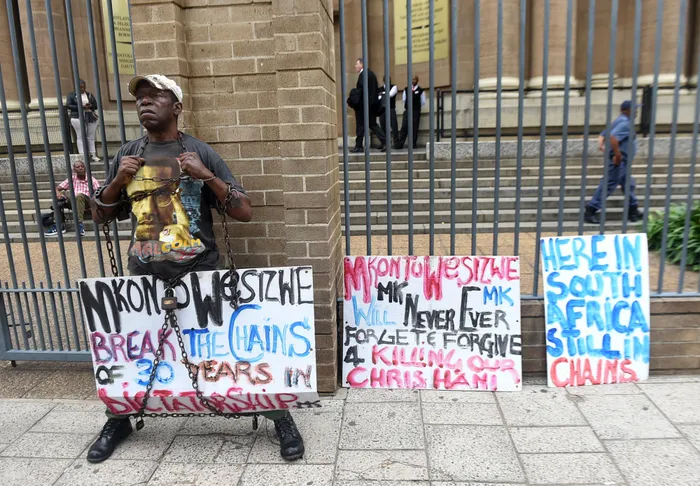 MKONTO WESIZWE
BREAK THE CHAINS
OF 30 YEARS IN
DICTATORSHIP
MKONTO WESIZWE
MK MK
WILL NEVER EVER
FORGET.E FORGIVE
4 KILLING OUR
CHRIS HANI
HERE IN
SOUTH
AFRICA
STILL IN
CHAINS